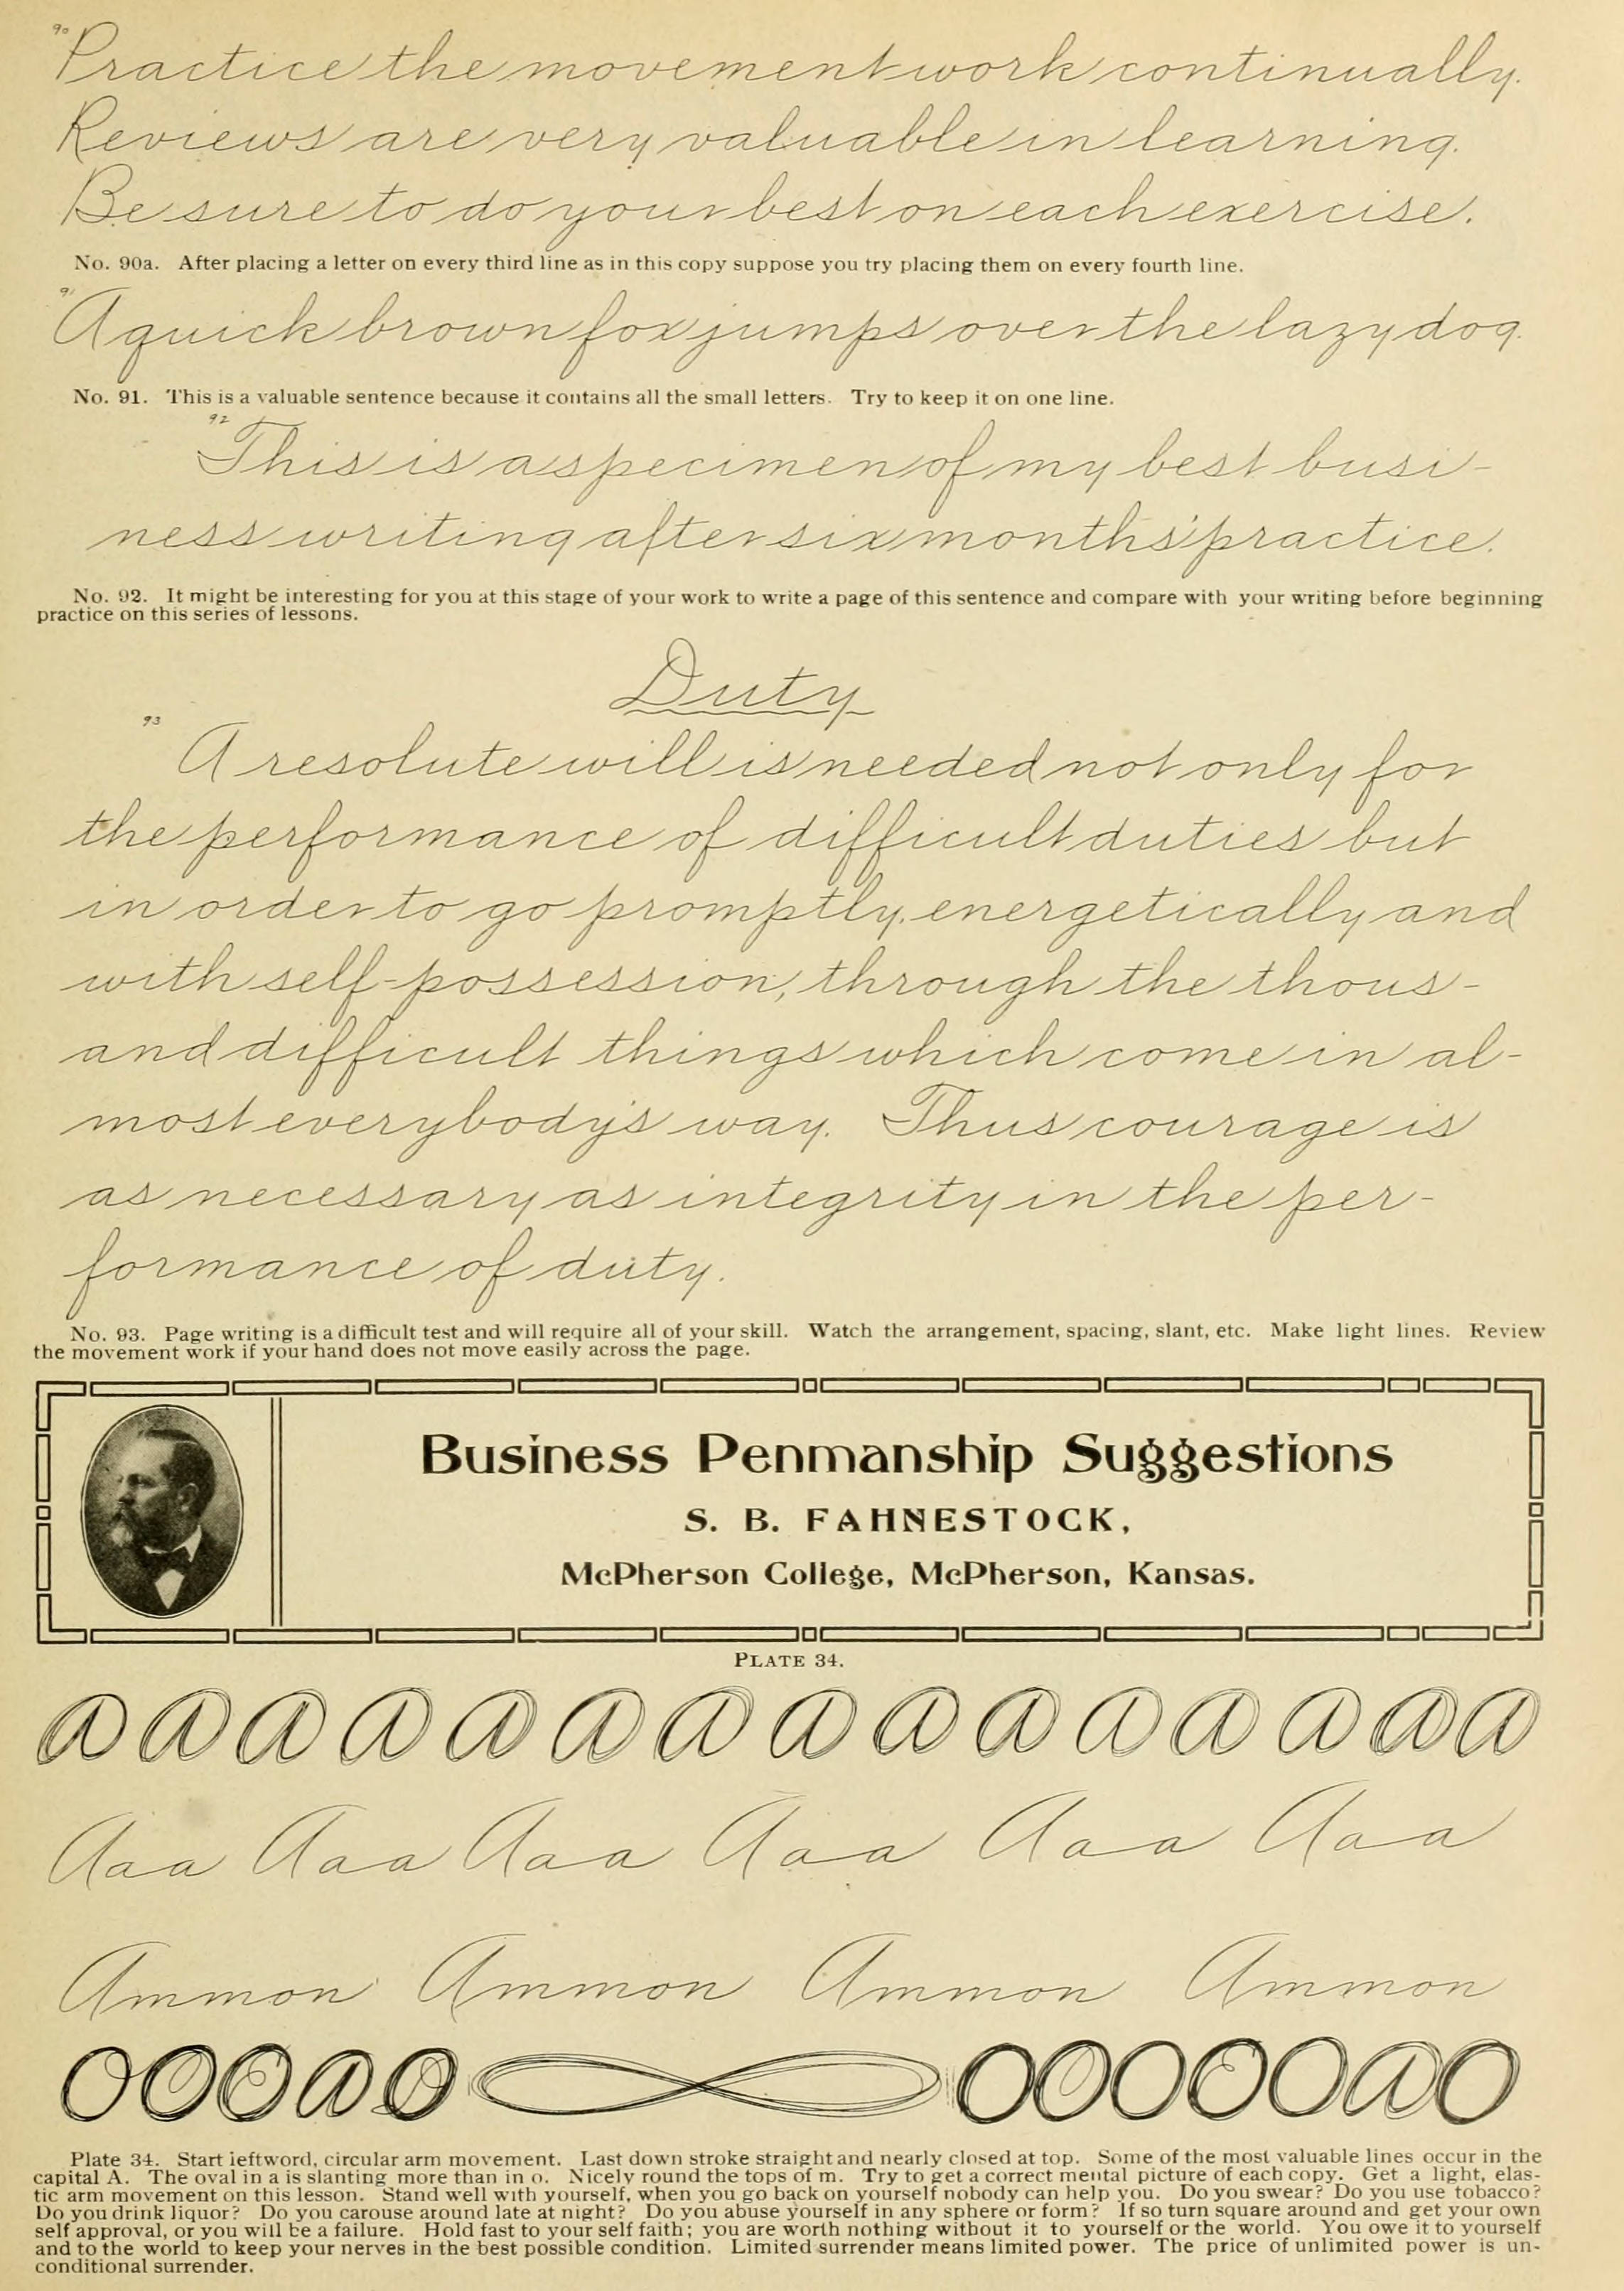 90
Practice the movement work continually.
Reviews are very valuable in learning.
Be sure to do your best on each exercise.
No. 90a. After placing a letter on every third line as in this copy suppose you try placing them on every fourth line.
91
A quick brown fox jumps over the lazy dog.
No. 91. This is a valuable sentence because it contains all the small letters. Try to keep it on one line.
92
This is a specimen of my best busi-
ness writing after six months' practice.
No. 92. It might be interesting for you at this stage of your work to write a page of this sentence and compare with your writing before beginning
practice on this series of lessons.
Duty
93
A resolute will is needed not only for
the performance of difficult duties but
in order to go promptly, energetically and
with self-possession, through the thous-
and difficult things which come in al-
most everybody's way. Thus courage is
as necessary as integrity in the per-
formance of duty.
No. 93. Page writing is a difficult test and will require all of your skill. Watch the arrangement, spacing, slant, etc. Make light lines. Review
the movement work if your hand does not move easily across the page.
Business Penmanship Suggestions
S. B. FAHNESTOCK,
McPherson College, McPherson, Kansas.
PLATE 34.
A A A A A A A A A A A A A A A
Aaa Aaa Aaa Aaa Aaa Aaa
Ammon Ammon Ammon Ammon
Plate 34. Start leftword, circular arm movement. Last down stroke straight and nearly closed at top. Some of the most valuable lines occur in the
capital A. The oval in a is slanting more than in o. Nicely round the tops of m. Try to get a correct mental picture of each copy. Get a light, elas-
tic arm movement on this lesson. Stand well with yourself, when you go back on yourself nobody can help you. Do you swear? Do you use tobacco?
Do you drink liquor? Do you carouse around late at night? Do you abuse yourself in any sphere or form? If so turn square around and get your own
self approval, or you will be a failure. Hold fast to your self faith; you are worth nothing without it to yourself or the world. You owe it to yourself
and to the world to keep your nerves in the best possible condition. Limited surrender means limited power. The price of unlimited power is un-
conditional surrender.